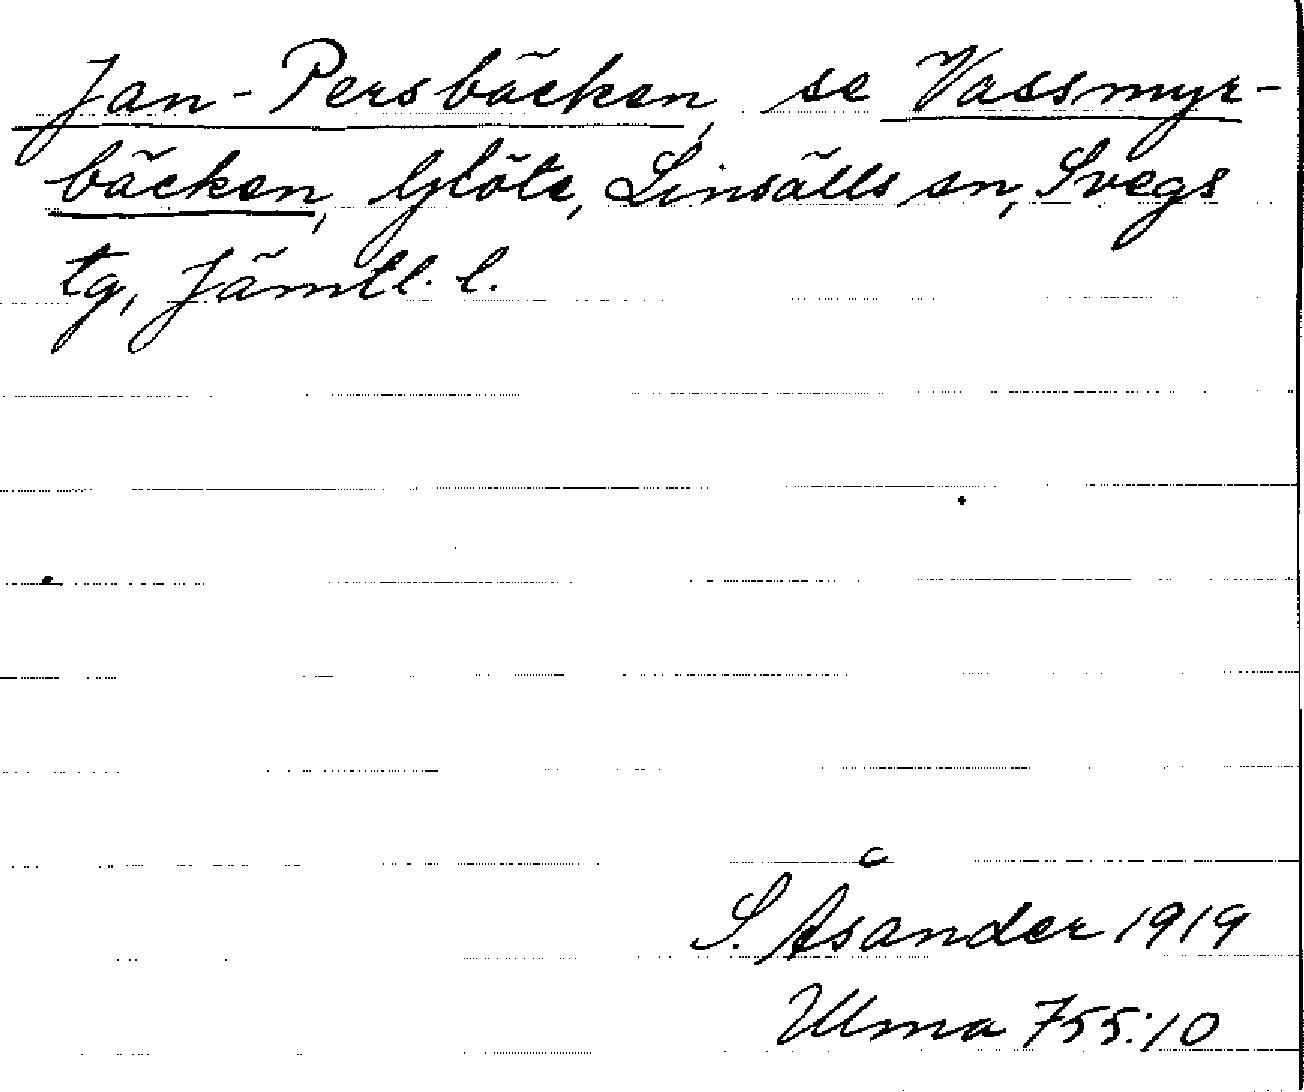 Jan-Persbäcken, se Vassmyr-
bäcken, Glöte, Linsälls sn, Svegs
tg, Jämtl. l.
S. Åsander 1919
Ulma 755:10